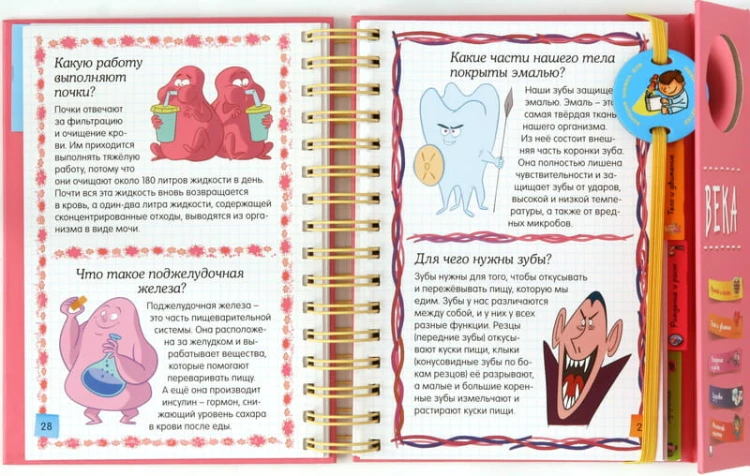 Какую работу
выполняют
почки?
Почки отвечают
за фильтрацию
и очищение кро-
ви. Им приходится
выполнять тяжёлую
работу, потому что
они очищают около 180 литров жидкости в день.
Почти вся эта жидкость вновь возвращается
в кровь, а один-два литра жидкости, содержащей
сконцентрированные отходы, выводятся из орга-
низма в виде мочи.
Что такое поджелудочная
железа?
Поджелудочная железа –
это часть пищеварительной
системы. Она расположе-
на за желудком и вы-
рабатывает вещества,
которые помогают
переваривать пищу.
А ещё она производит
инсулин – гормон, сни-
жающий уровень сахара
в крови после еды.
28
Какие части нашего тела
покрыты эмалью?
Наши зубы защище
эмалью. Эмаль – это
самая твёрдая ткань
нашего организма.
Из неё состоит внеш-
няя часть коронки зуба.
Она полностью лишена
чувствительности и за-
щищает зубы от ударов,
высокой и низкой темпе-
ратуры, а также от вред-
ных микробов.
Для чего нужны зубы?
Зубы нужны для того, чтобы откусывать
и пережёвывать пищу, которую мы
едим. Зубы у нас различаются
между собой, и у них у всех
разные функции. Резцы
(передние зубы) откусы-
вают куски пищи, клыки
(конусовидные зубы по бо-
кам резцов) её разрывают,
а малые и большие корен-
ные зубы измельчают и
растирают куски пищи.
2
Тело и движение
Рождение и рост
ВЕКА